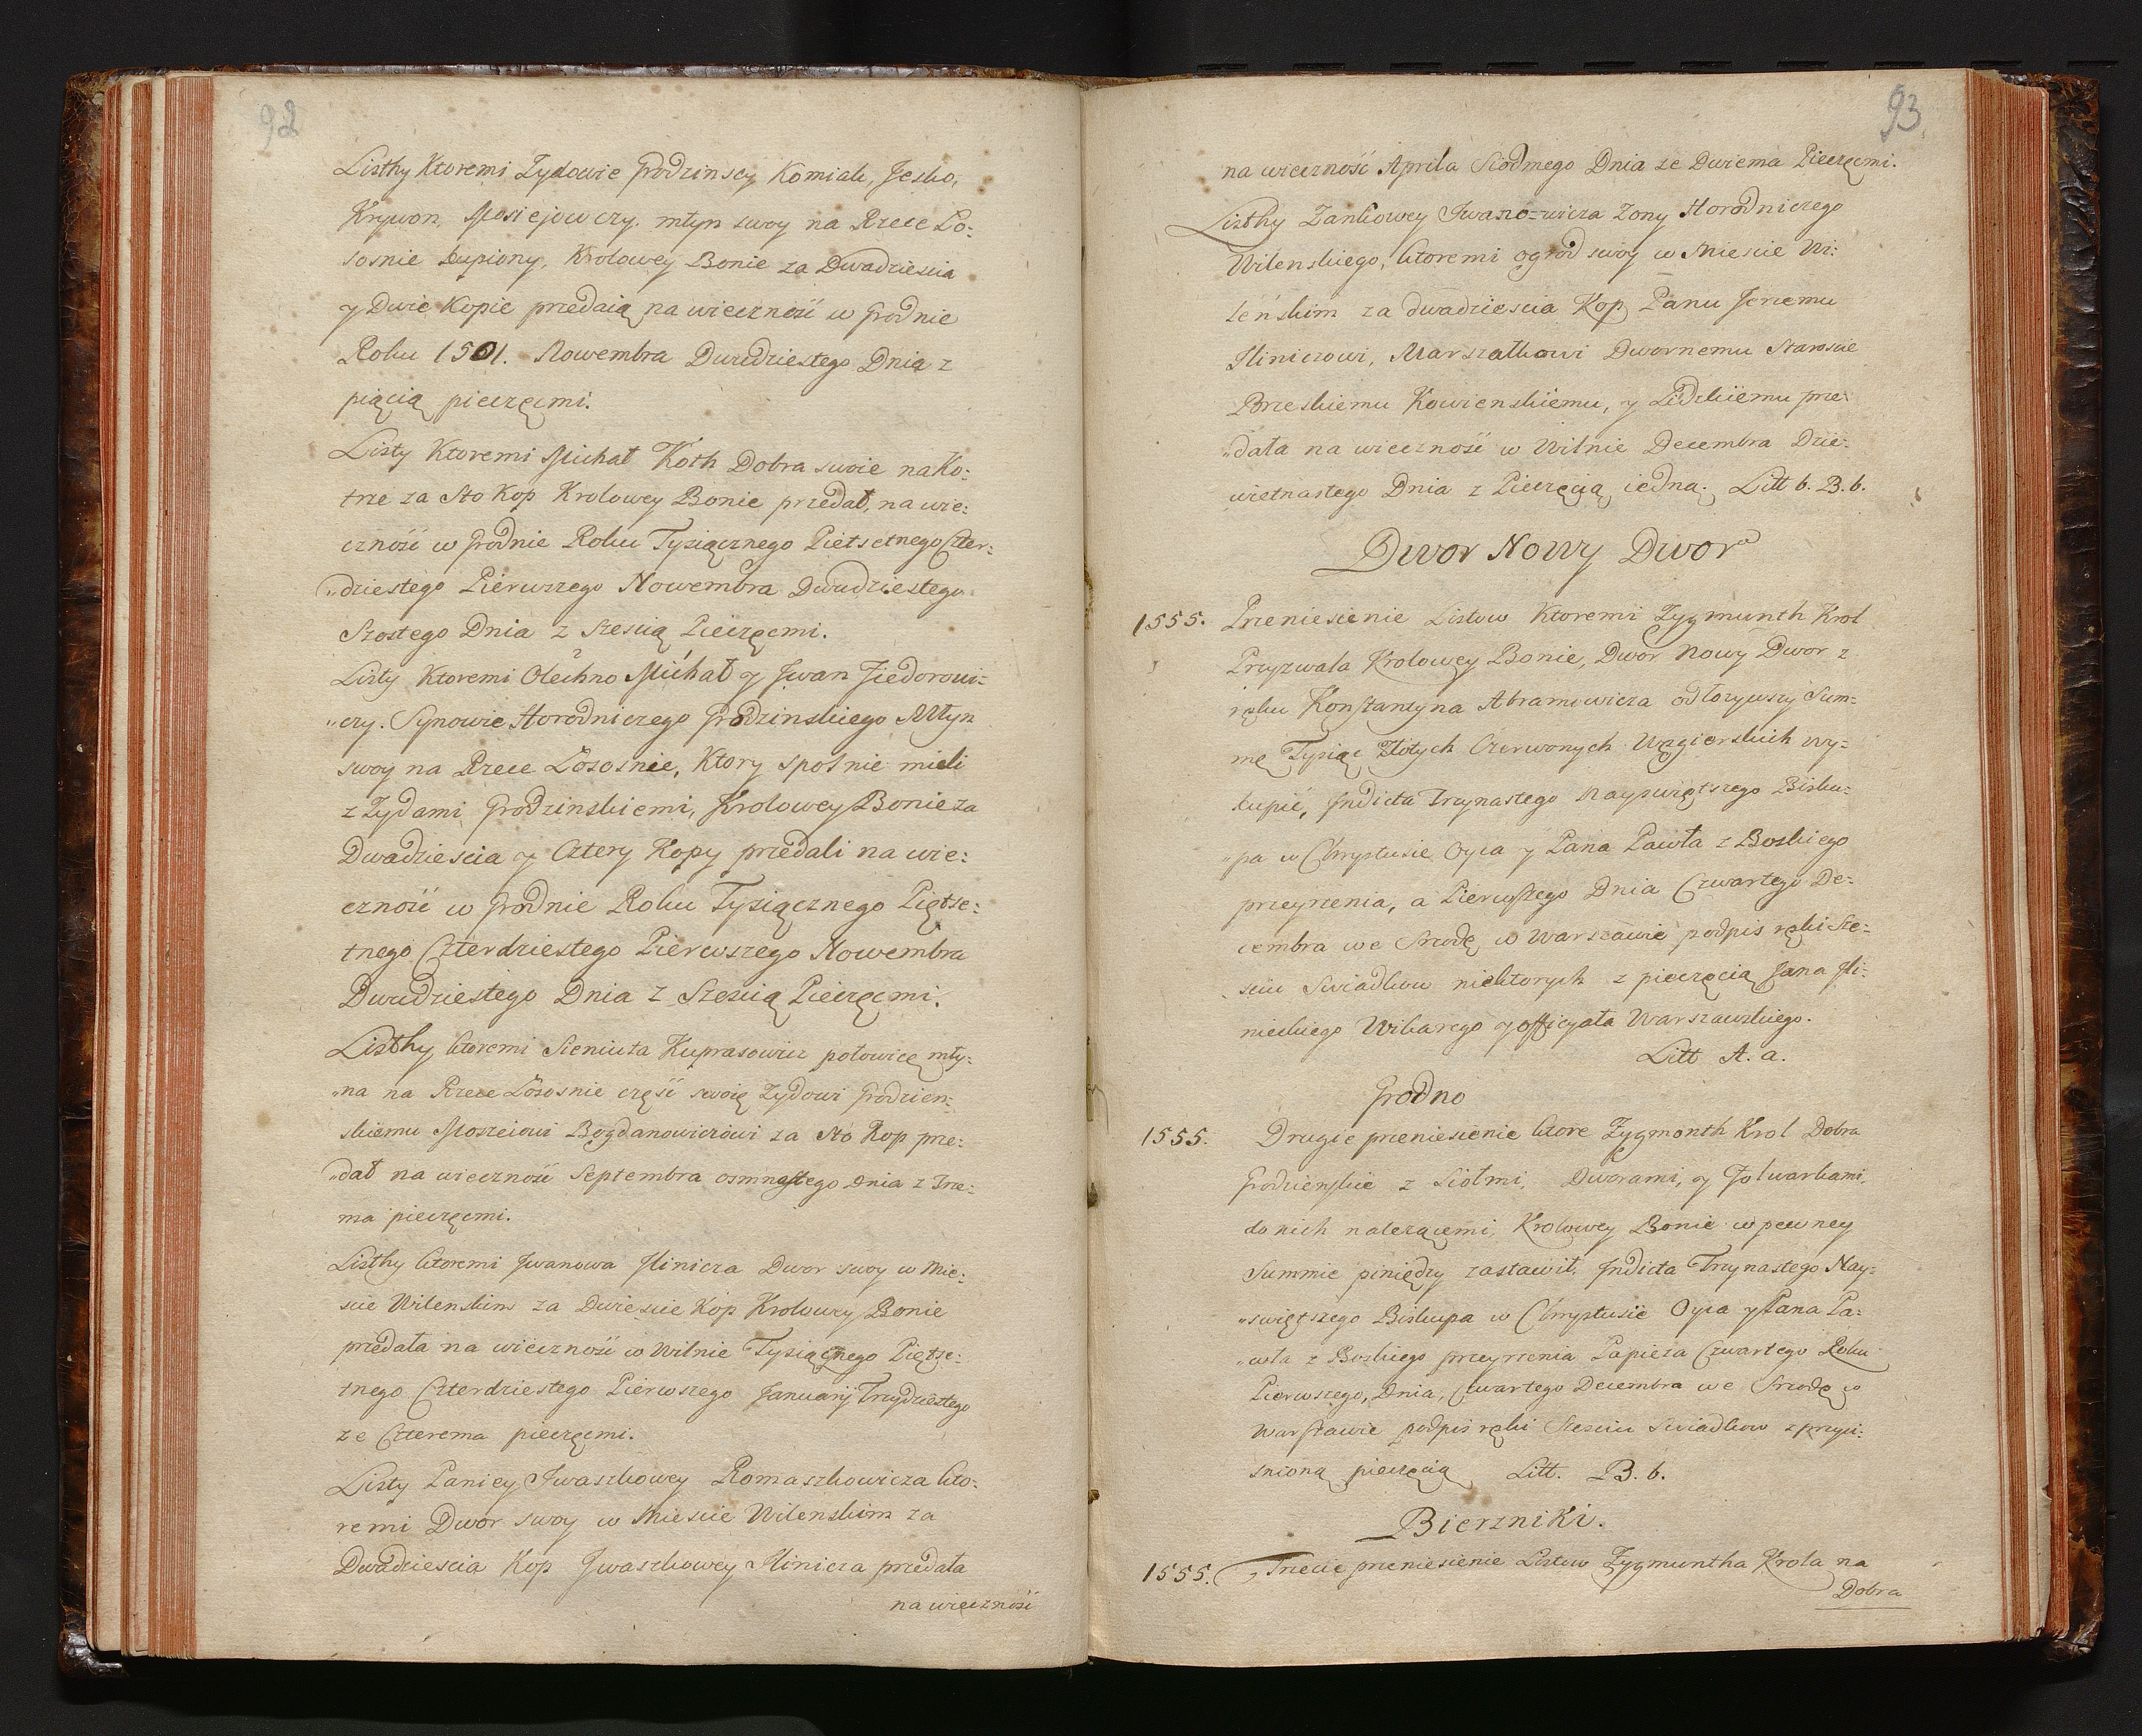 92
Listhy Ktoremi Zydowie Grodzinscy Komiak, Jesko,
Krywon, Mosiejowczy. młyn swoy na Rzece Lo:
sosnie kupiony, Krolowey Bonie za Dwadziescia
y Dwie Kopie przedaią na wieczność w Grodnie
Roku 1501. Nowembra Dwudziestego Dnia z
piącią pieczęcmi.
Listy Ktoremi Michał Koth Dobra swoie na Ko:
trze za Sto Kop Krolowey Bonie przedał, na wie:
czność w Grodnie Roku Tysiącznego Piętsetnego Czter:
„dziestego Pierwszego Nowembra Dwudziestego
Szostego Dnia z Szescią Pieczęcmi.
Listy Ktoremi Olechno Michał y Jwan Fiedorowi:
„czy. Synowie Horodniczego Grodzinskiego Młyn
swoy na Rzece Łososnie, Ktory spolnie mieli
z Zydami Grodzinskiemi, Krolowey Bonie za
Dwadziescia y Cztery Kopy przedali na wie:
czność w Grodnie Roku Tysiącznego Piętse:
tnego Czterdziestego Pierwszego Nowembra
Dwudziestego Dnia z Szescią Pieczęcmi.
Listhy ktoremi Sieniuta Kuprasowicz połowicę mły:
„na na Rzece Łososnie część swoię Zydowi Grodzien:
skiemu Moszeiowi Bogdanowiczowi za Sto Kop prze:
„dał na wieczność Septembra osmnastego Dnia z Trze:
ma pieczęcmi.
Listhy ktoremi Jwanowa Jlinicza Dwor swoy w Mie:
scie Wilenskim za Dwiescie Kop Krolowey Bonie
przedała na wieczność w Wilnie Tysiącznego Piętse:
tnego Czterdziestego Pierwszego Januarij Trzydziestego
ze Czterema pieczęcmi.
Listy Paniey Jwaszkowey Romaszkowicza kto:
remi Dwor swoy w Miescie Wilenskim za
Dwadziescia Kop Jwaszkowey Jlinicza przedała
na wieczność
93.
na wieczność Aprila Siodmego Dnia ze Dwiema Pieczęcmi.
Listhy Zankowey Jwano-wicza Zony Horodniczego
Wilenskiego, ktoremi ogrod swoy w Miescie Wi:
leńskim za dwadziescia Kop Panu Jerzemu
Jliniczowi, Marszałkowi Dwornemu Staroscie
Brzeskiemu Kowienskiemu, y Lidzkiemu prze:
„dała na wieczność w Wilnie Decembra Dzie:
wietnastego Dnia z Pieczęcią iedną. Litt b. B. b.
Dwor Nowy Dwor
1555. Przeniesienie Listow Ktoremi Zygmunth Krol
Przyzwala Krolowey Bonie, Dwor Nowy Dwor z
ręku Konstantyna Abramowicza odłozywszy Sum:
mę Tysiąc Złotych Czerwonych Węgierskich wy:
kupić, Jndicta Trzynastego Nayswiętszego Bisku:
„pa w Chrystusie Oyca y Pana Pawła z Boskiego
przeyrzenia, a Pierwszego Dnia Czwartego De:
cembra we Srzodę w Warszawie podpis ręki Sze:
sciu Swiadkow niektorych z pieczęcią Jana Jli:
nieckiego Wikarego y officyała Warszawskiego.
Litt A. a.
Grodno
1555. Drugie przeniesienie ktore Zygmonth Krol Dobra
Grodzienskie z Siołmi, Dworami, y Folwarkami,
do nich nalezącemi, Krolowey Bonie w pewney
Summie piniędzy zastawił, Jndicta Trzynastego Nay:
„swiętszego Biskupa w Chrystusie Oyca y Pana Pa:
„wła z Boskiego przeyrzenia Papieza Czwartego Roku
Pierwszego, Dnia, Czwartego Decembra we Srzodę w
Warszawie podpis ręki Szesciu Swiadkow z przyci:
snioną pieczęcią Litt. B. b.
Bierzniki.
1555. Trzecie przeniesienie Listow Zygmuntha Krola na
Dobra